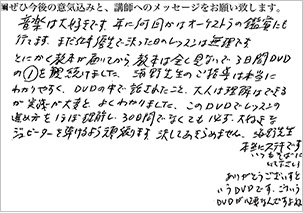 ■ぜひ今後の意気込みと、講師へのメッセージをお願い致します。
音楽は大好きです。年に何回かはオーケストラの鑑賞にも
行きます。まだ仕事
で決った日のレッスンは無理です
とにかく教本が届いてから教本は全く見ないで3日間DVD
の①を観続けました。海野先生のご指導は本当に
わかりやすく、DVDの中で話されたこと、大人は理解はできる
が実践が大事と、よくわかりました。このDVDでレッスンの
進め方をほぼ理解し30日間でなくても
ジュピターを弾けるよう頑張ります 決してあきらめません。海野先生
本当にステキです
いつもそばに
いて下さい
ありがとうございますと
いうDVDです。こういう
DVDが必要なんですよね